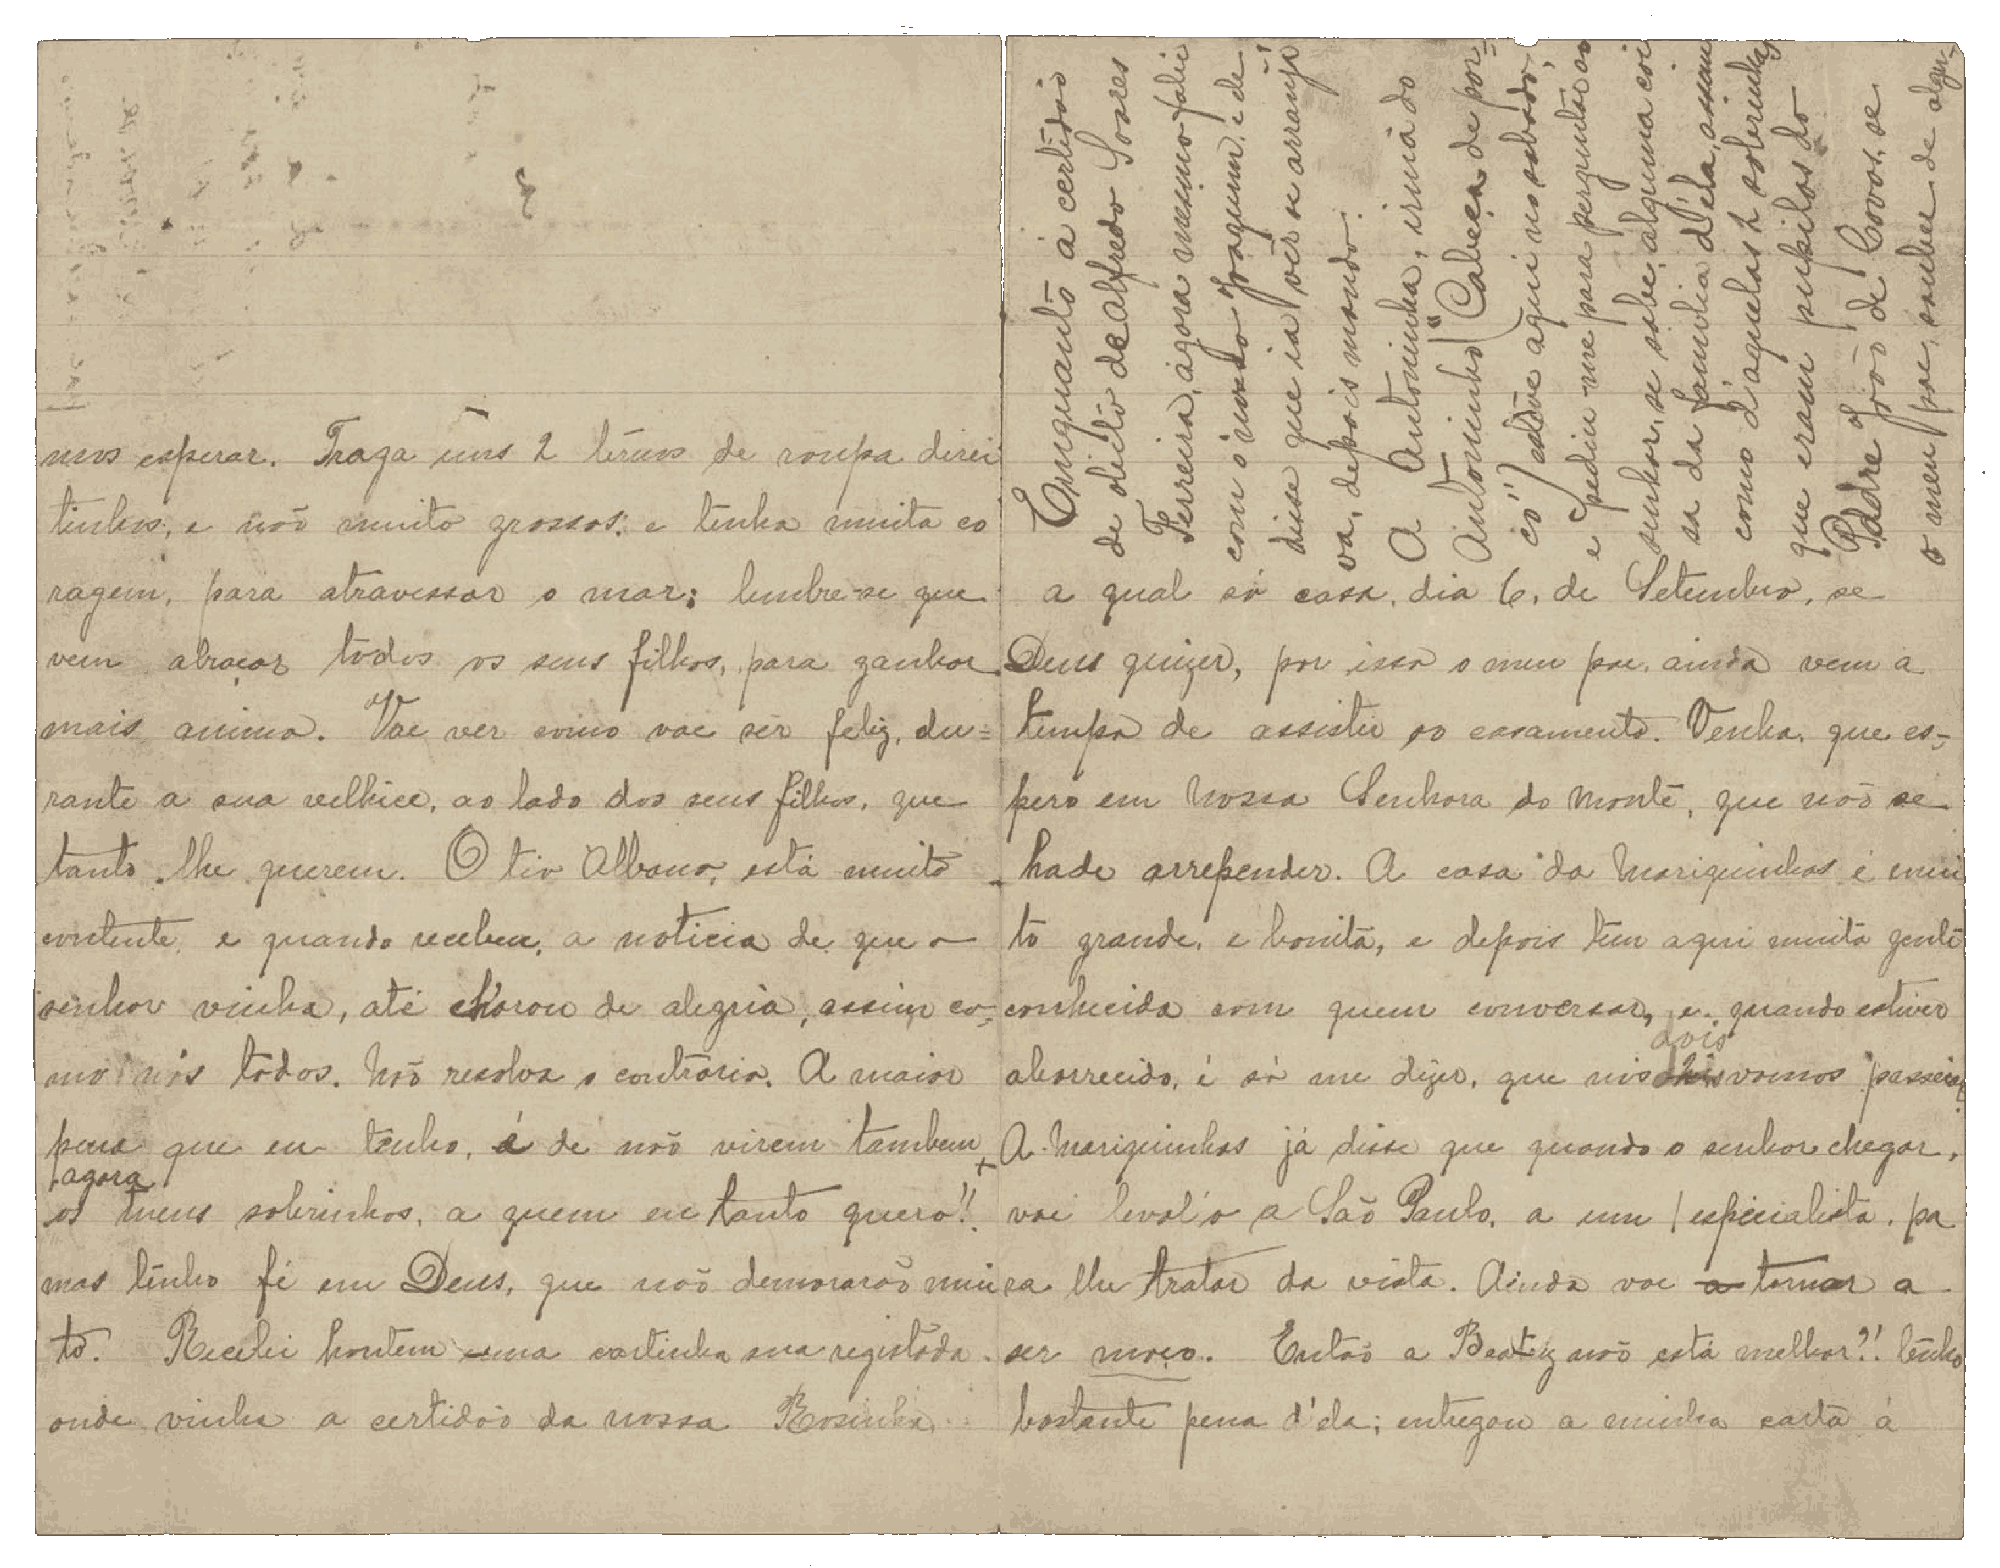 mos esperar. Traga uns 2 ternos de roupa direi
tinhos, e não muito grossos; e tenha muita co
ragem, para atravessar o mar; lembre-se que
vem abraçar todos os seus filhos, para ganhar
mais animo. Vae ver como vae ser feliz, du=
rante a sua velhice, ao lado dos seus filhos, que
tanto lhe querem. O tio Albano, está muito
contente, e quando recebeu, a noticia de que o
senhor vinha, até chorou de alegria, assim co=
mo nós todos. Não resolva o contrário. A maior
pena que eu tenho, é de não virem tambem
agora
os meus sobrinhos, a quem eu tanto quero!!
mas tenho fé em Deus, que não demorarão mui
to. Recebi hontem uma cartinha sua registada
onde vinha a certidão da nossa Rosinha,
a qual só casa, dia 6, de Setembro, se
Deus quizer, por isso o meu pae, ainda vem a
tempo de assistir ao casamento. Venha, que es=
pero em Nossa Senhora do Monte, que não se
hade arrepender. A casa da Mariquinhas é mui
to grande, e bonita, e depois tem aqui muita gente
conhecida com quem conversar, e quando estiver
dois
aborrecido, é só me dizer, que nós vamos passeiar.
A Mariquinhas já disse que quando o senhor chegar,
vai leval'o a São Paulo, a um especialista, pa
ra lhe tratar da vista. Ainda vae a tornar a
ser moço. Então a Beatriz não está melhor?! tenho
bastante pena d'ela; entregou a minha carta á
Emquanto á certidão
de obito de Alfredo Soares
Ferreira, agora mesmo falei
com o Joaquim, e ele
disse que ia vêr se arranja
va, depois mando.
A Antoninha, irmã do
Antoninho ("Cabeça de por=
co") esteve aqui no sabado,
e pediu-me para perguntar ao
senhor, se sabe, alguma coi
sa da familia d'ela, assim
como d'aquelas 2 sobrinhas
que eram pupilas do
Padre João de Covas, se
o meu pae, souber de algu=